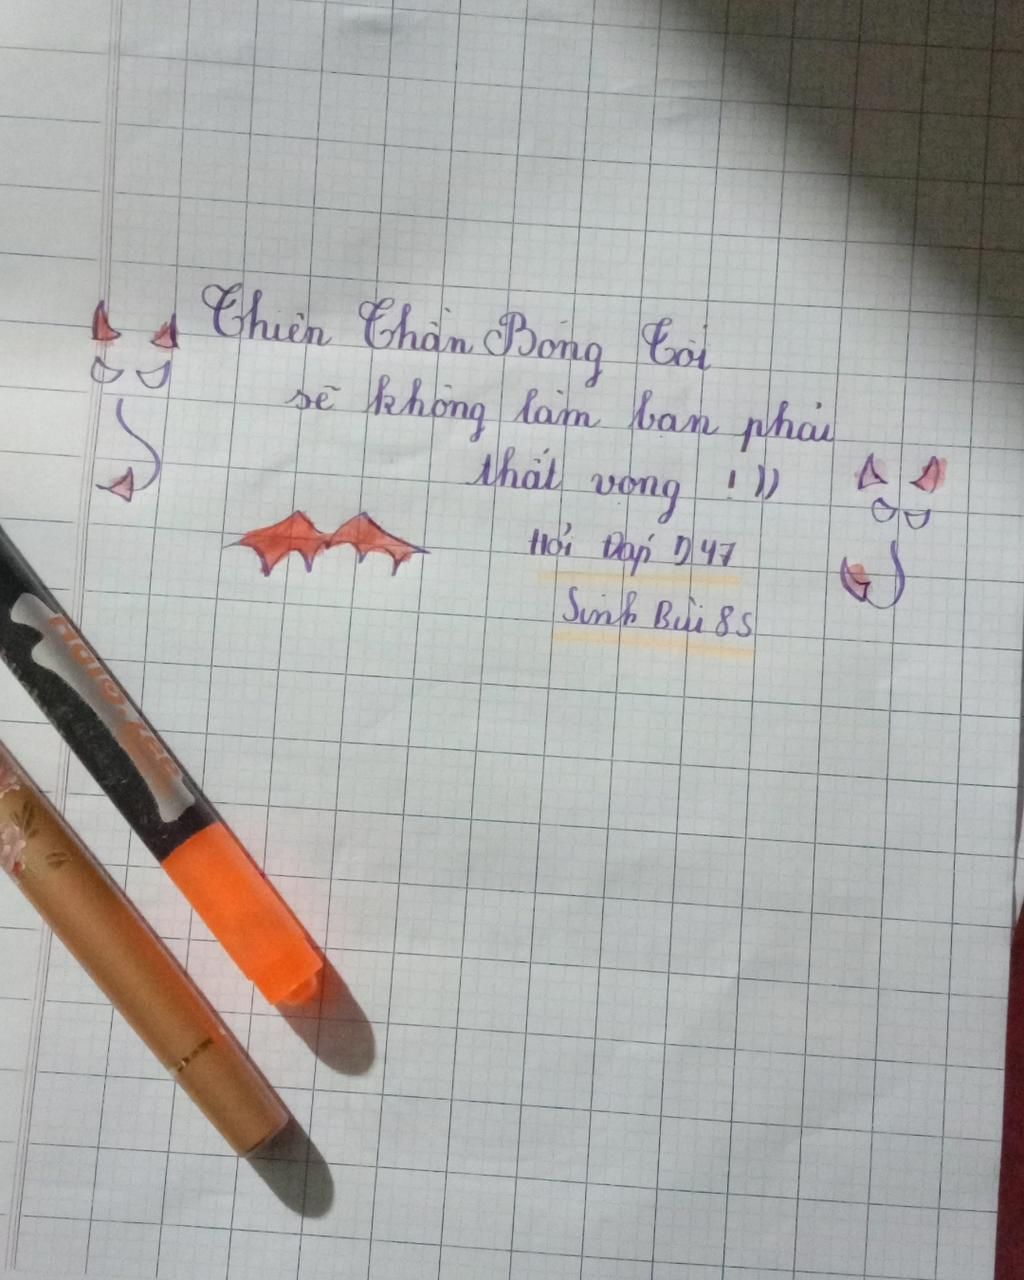 Thiên Thần Bóng Tối
sẽ không làm bạn phải
thất vọng !))
Hỏi Đáp 247
Sinh Bùi 8S